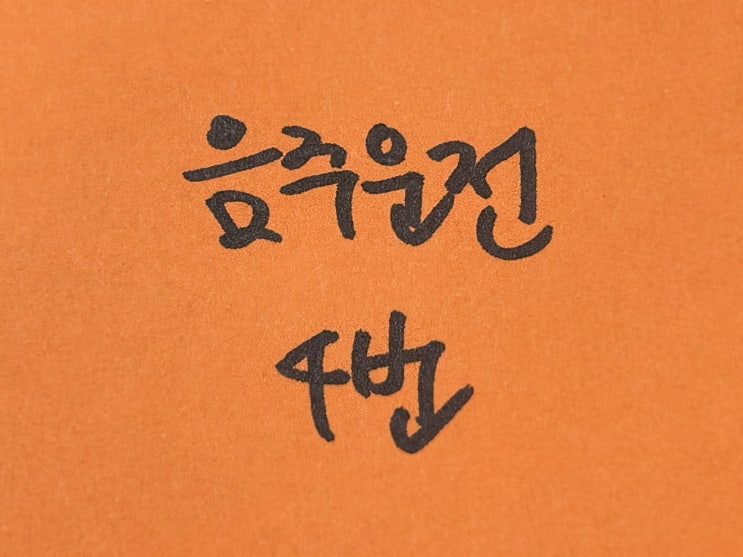 음주운전
4번